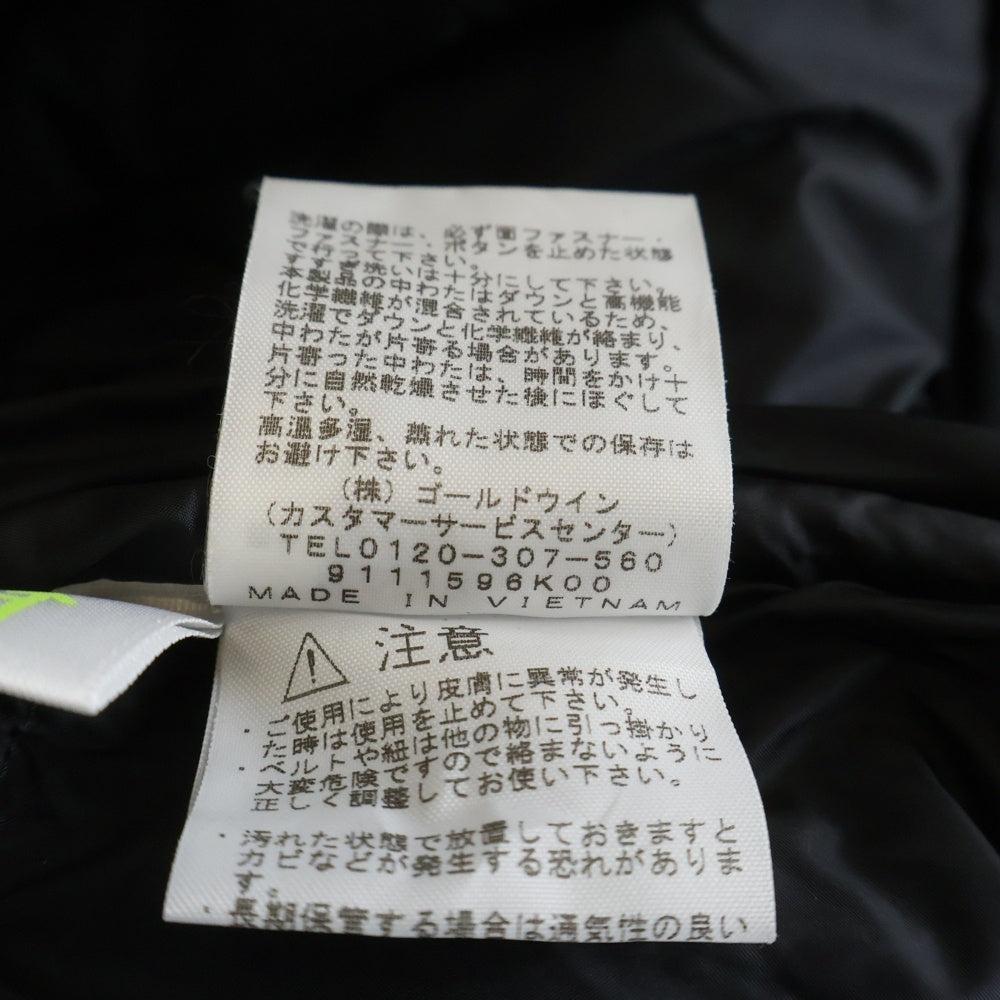 洗濯の際は、必ず面ファスナー・
ファスナー、ボタンを止めた状態
で行って下さい。
すすぎ洗いは十分にして下さい。
本製品の中わたはダウンと高機能
化学繊維が混合されているため、
洗濯でダウンと化学繊維が絡まり、
中わたが片寄る場合があります。
片寄った中わたは、時間をかけ十
分に自然乾燥させた後にほぐして
下さい。
高温多湿、蒸れた状態での保存は
お避け下さい。
(株) ゴールドウイン
(カスタマーサービスセンター)
TEL0120-307-560
9111596K00
MADE IN VIETNAM
注意
・ご使用により皮膚に異常が発生し
た時は使用を止めて下さい。
・ベルトや紐は他の物に引っ掛かり
大変危険ですので絡まないように
正しく調整してお使い下さい。
・汚れた状態で放置しておきますと
カビなどが発生する恐れがありま
す。
・長期保管する場合は通気性の良い